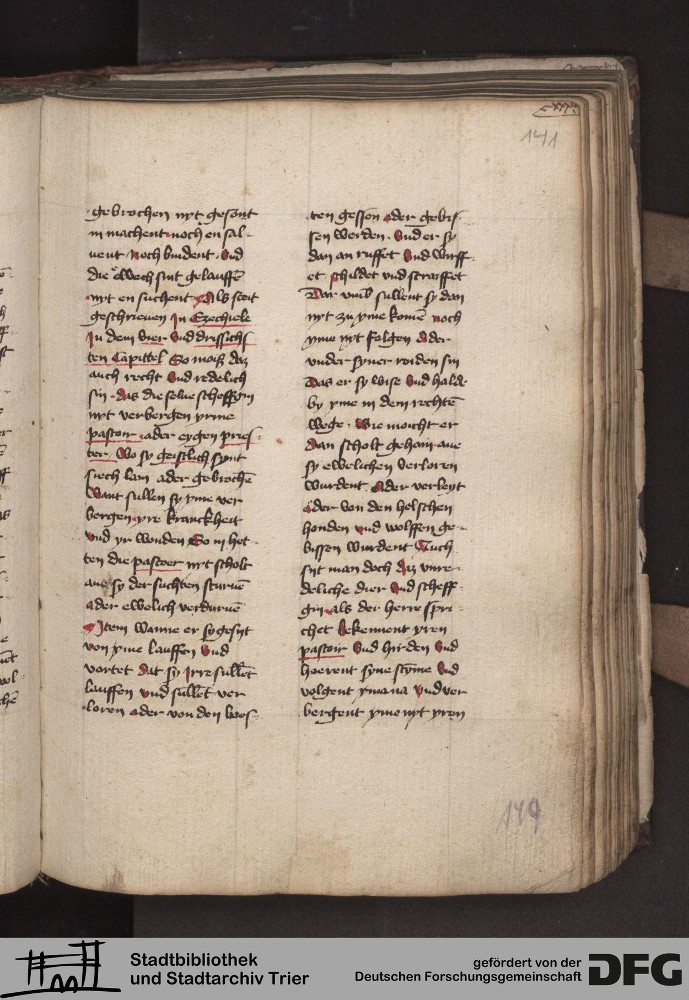 141
gebrochen nyt gesont
in machent noch en sal-
uent noch bindent · Vnd
die Wech sint gelauffē
nyt en suchent Als steit
geschrieuen In Ezechiele
In dem vier Vnd drissichs
ten Capittel So moiß daz
auch recht Vnd redelich
sin · das die selue scheffgin
nyt verbergen yrme
pastoir · ader eygen pries-
ter. Wo sy geistlich synt
siech lam ader gebrochē
Want sullen sy yme ver
bergen yre kranckheit
vnd yr wonden So in het-
ten die pastoer nyt scholt
aue sy der suchten sturuē
ader ewelich verduruē
Item wanne er sy gesyt
von yme lauffen Vnd
vortet dat sy Irre sullēt
lauffen vnd sullēt ver
loren ader von den boes-
ten gessen ader gebis-
sen werden · Vnd er sy
dan an ruffet Vnd wirff-
et schildet vnd straiffet
Dar vmb sullent sy dan
nyt zu yme komē noch
yme nyt folgen Ader
vnder syner roiden sin
Das er sy wise Vnd halde
by yme in dem rechtē
wege · Wie moicht er
dan scholt gehain aue
sy ewelichen verloren
wurdent. Ader verleyt
ader von den helschen
honden vnd wolffen ge-
bissen wurdent Auch
syt man doch daz vnre-
deliche dier Vnd scheff-
gin als der herre spri-
chet bekennent yren
pastoir Vnd hirden Vnd
hoerent syne stȳme Vnd
volgent yme na Vnd ver
bergent yme nyt yren
149
Stadtbibliothek
und Stadtarchiv Trier
gefördert von der
Deutschen Forschungsgemeinschaft
DFG